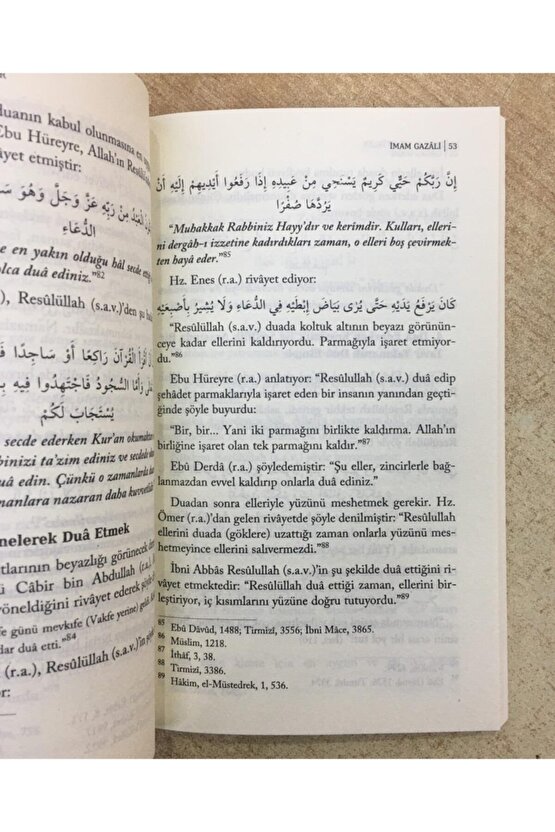 duanın kabul olunmasına en
Ebu Hüreyre, Allah'ın
etmiştir:
الْعَبْدُ مِنْ رَبِّهِ عَزَّ وَجَلَّ وَهُوَ
الدُّعَاءَ
e en yakın olduğu hâl
olca duâ ediniz."82
), Resûlüllah (s.a.v.)'den şu
الْقُرْآنَ رَاكِعًا أَوْ سَاجِدًا
وَأَمَّا السُّجُودُ فَاجْتَهِدُوا فِيهِ
يُسْتَجَابَ لَكُمْ
secde ederken Kur'an
binizi ta'zim ediniz ve secdede
duâ edin. Çünkü o zamanlarda
manlara nazaran daha
nelerek Duâ Etmek
tlarının beyazlığı görünecek
û Câbir bin Abdullah (r.a.)
yöneldiğini rivâyet ederek
fe günü mevkıfe (Vakfe yerine)
ti."84
(r.a.), Resûlüllah (s.a.v.)'in
or:
İMAM GAZÂLİ | 53
إِنَّ رَبَّكُمْ حَيِّيٌ كَرِيمٌ يَسْتَحِي مِنْ عَبِيدِهِ إِذَا رَفَعُوا أَيْدِيهِمْ إِلَيْهِ أَنْ
يَرُدَّهَا صُفْرًا
"Muhakkak Rabbiniz Hayy'dır ve kerimdir. Kulları, elleri-
ni dergâh-ı izzetine kadırdıkları zaman, o elleri boş çevirmek-
ten haya eder."85
Hz. Enes (r.a.) rivâyet ediyor:
كَانَ يَرْفَعُ يَدَيْهِ حَتَّى يُرَى بَيَاضُ إِبْطَيْهِ فِي الدُّعَاءِ وَلَا يُشِيرُ بِأَصْبُعَيْهِ
"Resûlüllah (s.a.v.) duada koltuk altının beyazı görünün-
ceye kadar ellerini kaldırıyordu. Parmağıyla işaret etmiyor-
du."86
Ebu Hüreyre (r.a.) anlatıyor: "Resûlullah (s.a.v.) duâ edip
şehâdet parmaklarıyla işaret eden bir insanın yanından geçti-
ğinde şöyle buyurdu:
"Bir, bir... Yani iki parmağını birlikte kaldırma. Allah'ın
birliğine işaret olan tek parmağını kaldır."87
Ebû Derdâ (r.a.) şöyledemiştir: "Şu eller, zincirlerle bağ-
lanmazdan evvel kaldırıp onlarla duâ ediniz."
Duadan sonra elleriyle yüzünü meshetmek gerekir. Hz.
Ömer (r.a.)'dan gelen rivâyetde şöyle denilmiştir: "Resûlüllah
ellerini duada (göklere) uzattığı zaman onlarla yüzünü
meshetmeyince ellerini salıvermezdi."88
İbni Abbâs Resûlullah (s.a.v.)'in şu şekilde duâ ettiğini ri-
vâyet etmektedir: "Resûlüllah duâ ettiği zaman, ellerini bir-
leştiriyor, iç kısımlarını yüzüne doğru tutuyordu."89
85 Ebû Dâvûd, 1488; Tirmizî, 3556; İbni Mâce, 3865.
86 Müslim, 1218.
87 İthâf, 3, 38.
88 Tirmizî, 3386.
89 Hâkim, el-Müstedrek, 1, 536.